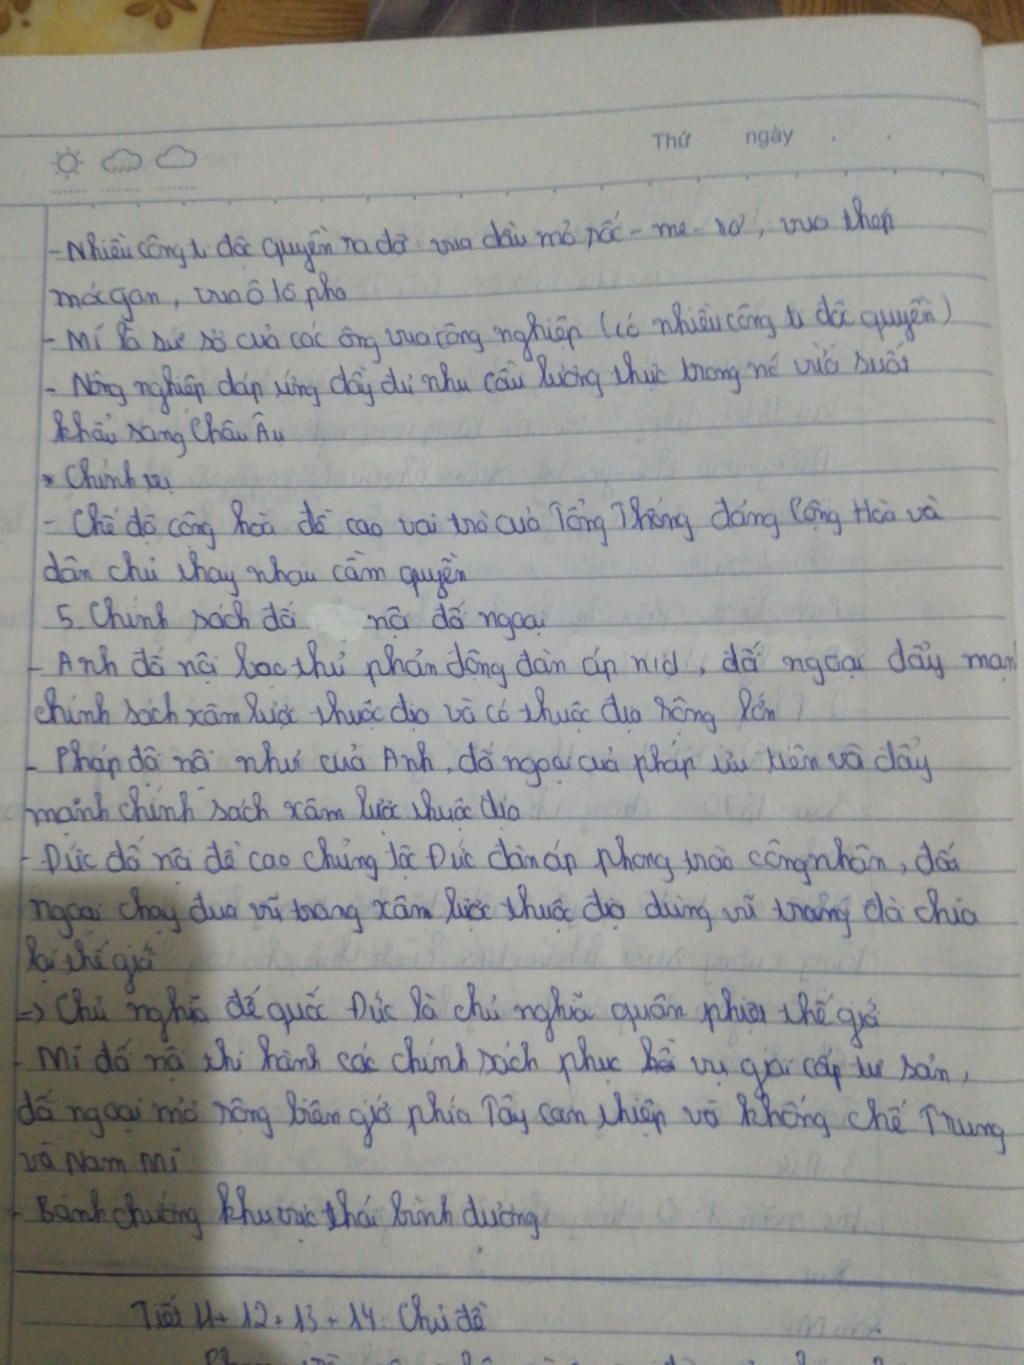 Thứ ngày . .
- Nhiều công ti độc quyền ra đờ vua dầu mỏ rốc - me - rơ, vua thép
moócgan, vua ô tô pho
- Mĩ là sứ sở của các ông vua công nghiệp (có nhiều công ti độc quyền)
- Nông nghiệp đáp ứng đầy đủ nhu cầu lương thực trong nc với suất
khẩu sang Châu Âu
* Chính trị
- Chế độ cộng hoà đề cao vai trò của Tổng Thống đảng Cộng Hòa và
dân chủ thay nhau cầm quyền
5. Chính sách đối nội đối ngoại
- Anh đối nội bảo thủ phản động đàn áp nd, đối ngoại đẩy mạnh
chính sách xâm lược thuộc địa và có thuộc địa rộng lớn
- Pháp đối nội như của Anh, đố ngoại của pháp ưu tiên và đẩy
mạnh chính sách xâm lược thuộc địa
- Đức đố nội đề cao chủng tộc Đức đàn áp phong trào công nhân, đối
ngoại chạy đua vũ trang xâm lược thuộc địa dùng vũ trang đòi chia
lại thế giới
=> Chủ nghĩa đế quốc Đức là chủ nghĩa quân phiệt thế giới
- Mĩ đố nội thi hành các chính sách phục vụ giai cấp tư sản,
đố ngoại mở rộng biên giới phía Tây can thiệp và khống chế Trung
và Nam Mĩ
- Bành chướng khu vực thái bình dương
Tiết 11 + 12 + 13 + 14: Chủ đề